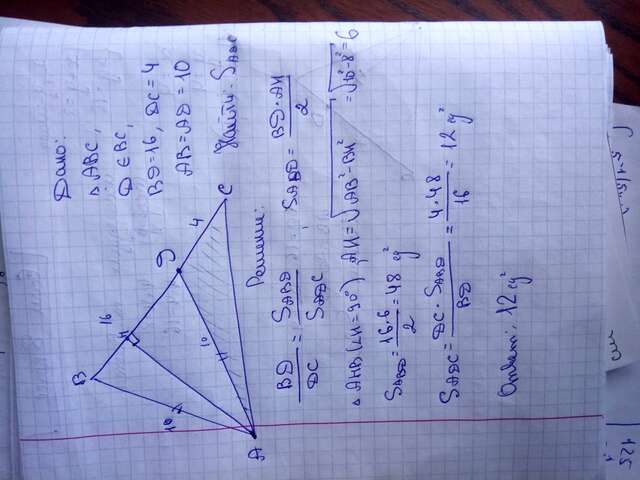 B
16
H
10
D
10
4
C
A
Дано:
△ ABC,
D ∈ BC,
BD = 16, DC = 4
AB = AD = 10
Найти: S_ADC
Решение:
BD/DC = S_ABD/S_ADC ; S_ABD = BD·AH/2
△ AHB (∠H = 90°), AH = √(AB² - BH²) = √(10² - 8²) = 6
S_ABD = 16·6/2 = 48 ед²
S_ADC = DC·S_ABD/BD = 4·48/16 = 12 ед²
Ответ: 12 ед²
125
см